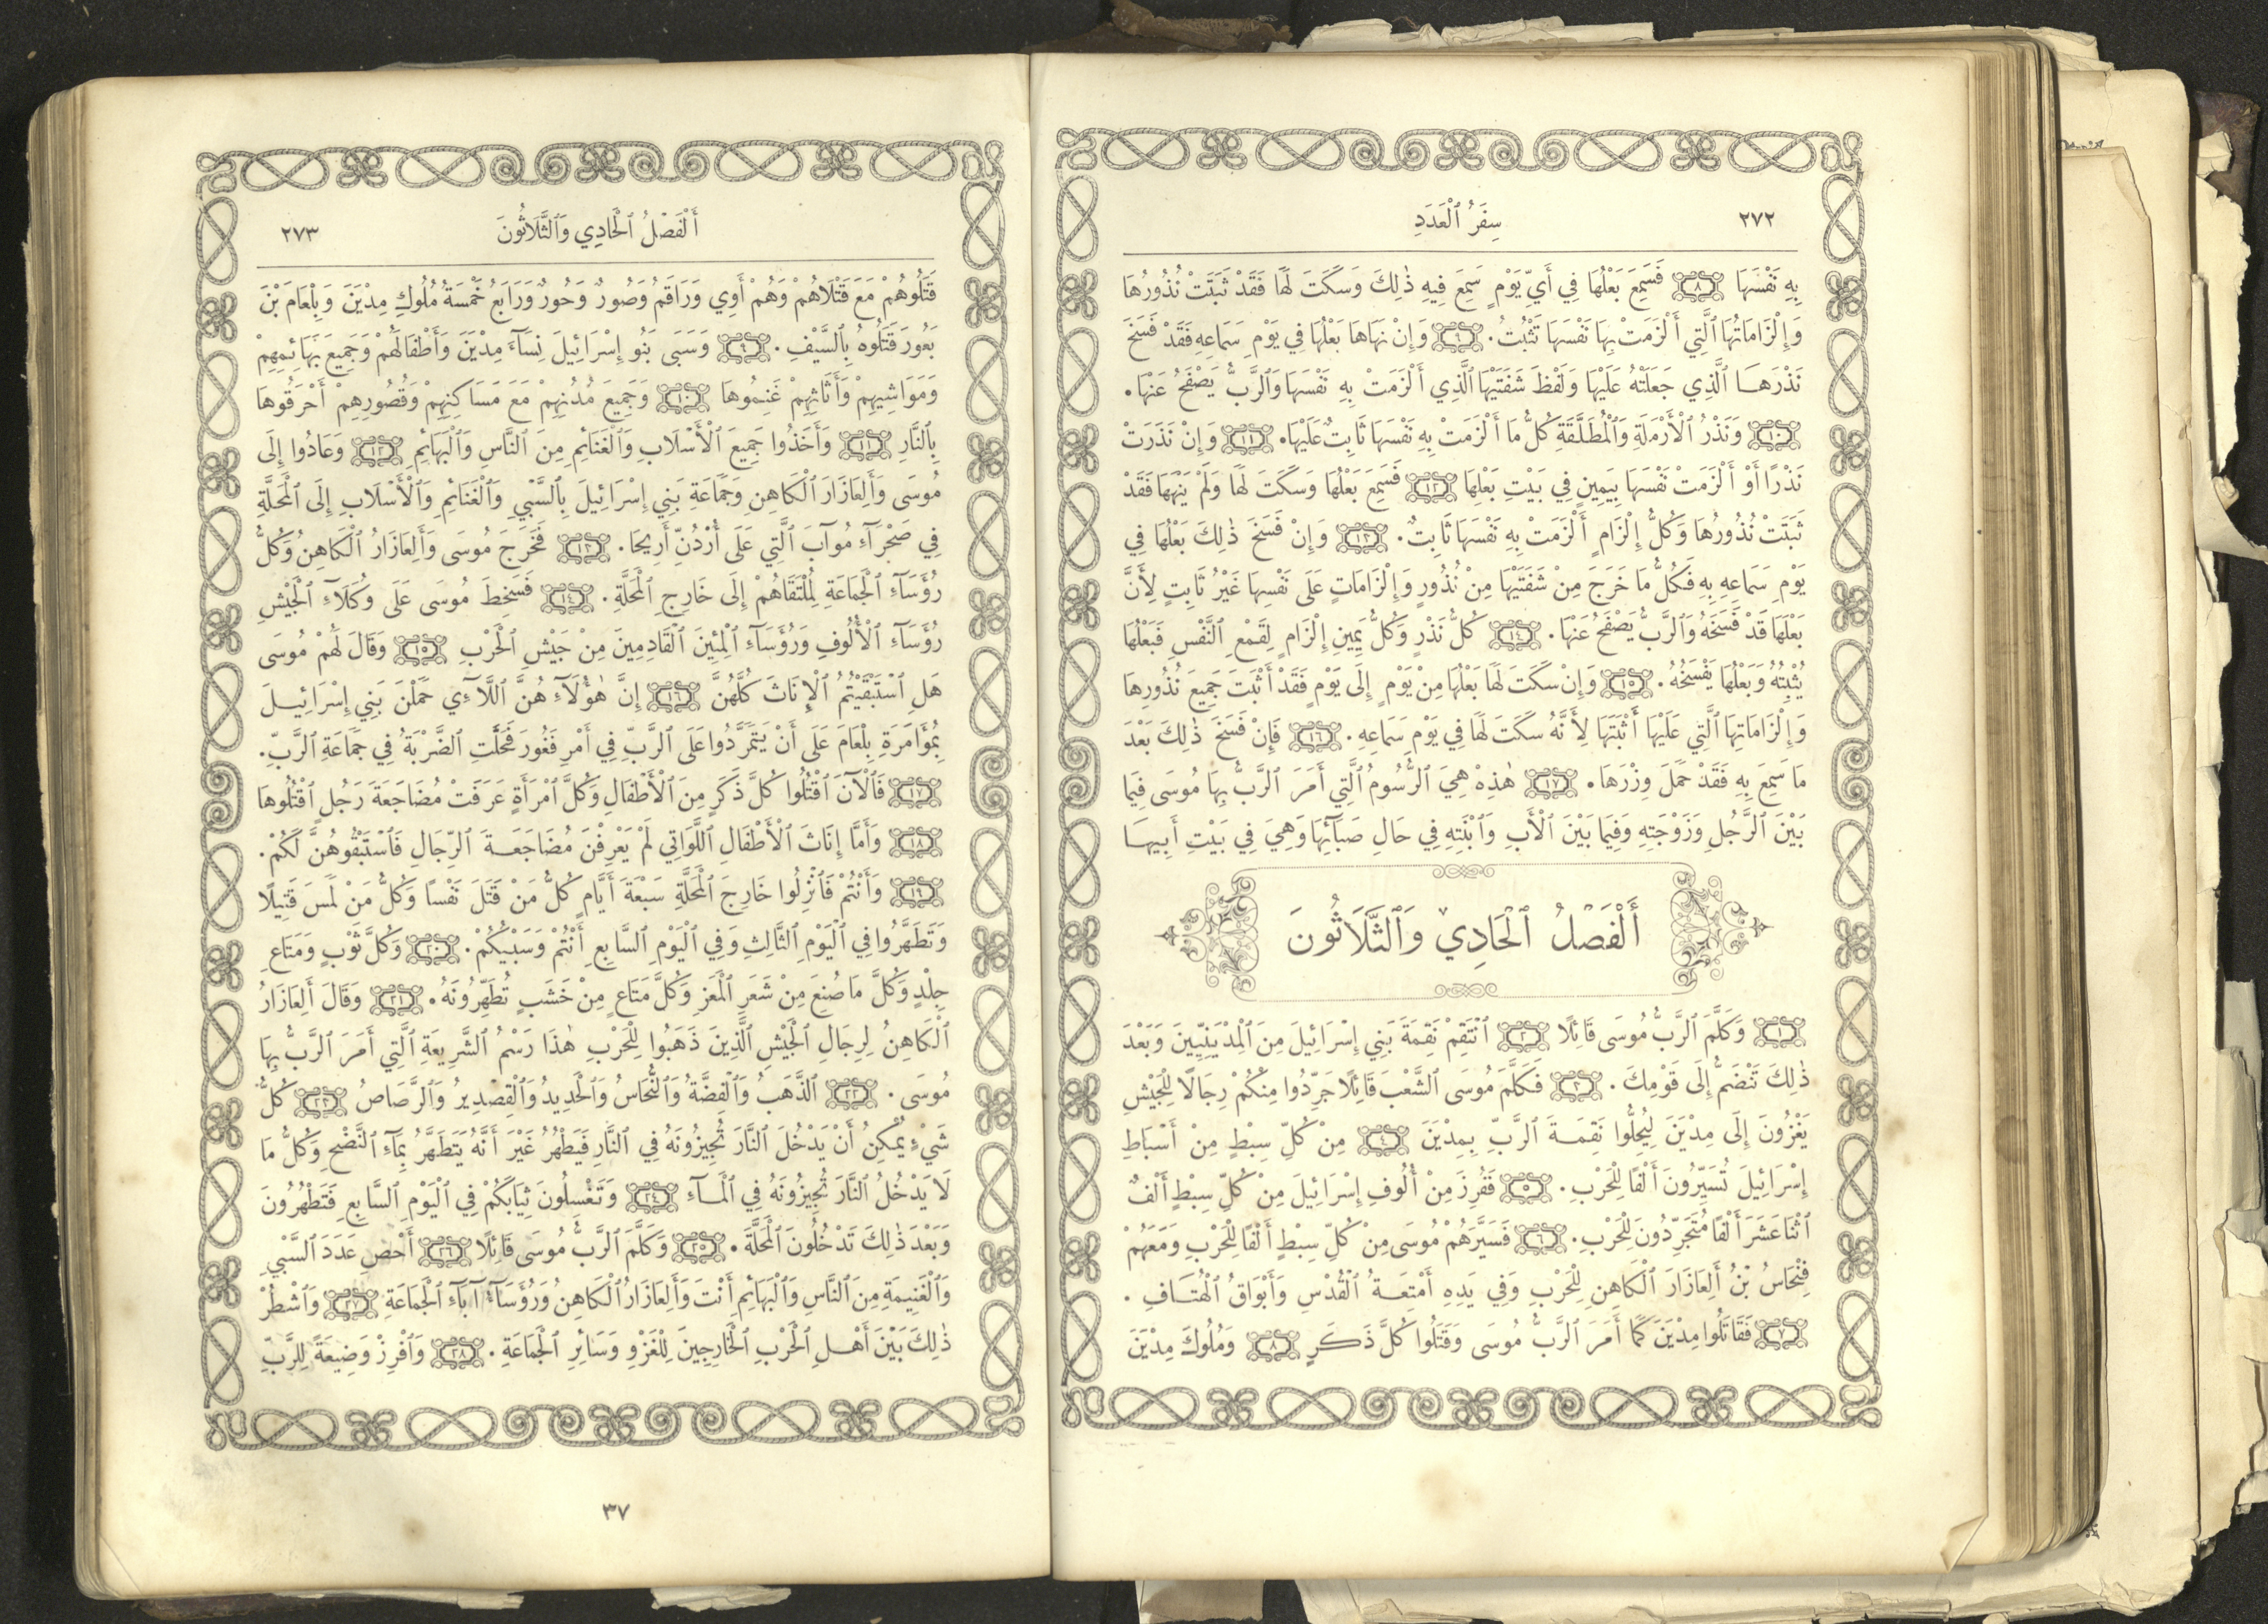 ٢٧٢
سِفْرُ ٱلْعَدَدِ
بِهِ نَفْسَهَا ﴿٨﴾ فَسَمِعَ بَعْلُهَا فِي أَيِّ يَوْمٍ سَمِعَ فِيهِ ذٰلِكَ وَسَكَتَ لَهَا فَقَدْ ثَبَتَتْ نُذُورُهَا
وَإِلْزَامَاتُهَا ٱلَّتِي أَلْزَمَتْ بِهَا نَفْسَهَا تَثْبُتُ. ﴿٩﴾ وَإِنْ نَهَاهَا بَعْلُهَا فِي يَوْمِ سَمَاعِهِ فَقَدْ فَسَخَ
نَذْرَهَا ٱلَّذِي جَعَلَتْهُ عَلَيْهَا وَلَفْظَ شَفَتَيْهَا ٱلَّذِي أَلْزَمَتْ بِهِ نَفْسَهَا وَٱلرَّبُّ يَصْفَحُ عَنْهَا.
﴿١٠﴾ وَنَذْرُ ٱلْأَرْمَلَةِ وَٱلْمُطَلَّقَةِ كُلُّ مَا أَلْزَمَتْ بِهِ نَفْسَهَا ثَابِتٌ عَلَيْهَا. ﴿١١﴾ وَإِنْ نَذَرَتْ
نَذْرًا أَوْ أَلْزَمَتْ نَفْسَهَا بِيَمِينٍ فِي بَيْتِ بَعْلِهَا ﴿١٢﴾ فَسَمِعَ بَعْلُهَا وَسَكَتَ لَهَا وَلَمْ يَنْهَهَا فَقَدْ
ثَبَتَتْ نُذُورُهَا وَكُلُّ إِلْزَامٍ أَلْزَمَتْ بِهِ نَفْسَهَا ثَابِتٌ. ﴿١٣﴾ وَإِنْ فَسَخَ ذٰلِكَ بَعْلُهَا فِي
يَوْمِ سَمَاعِهِ بِهِ فَكُلُّ مَا خَرَجَ مِنْ شَفَتَيْهَا مِنْ نُذُورٍ وَإِلْزَامَاتٍ عَلَى نَفْسِهَا غَيْرُ ثَابِتٍ لِأَنَّ
بَعْلَهَا قَدْ فَسَخَهُ وَٱلرَّبُّ يَصْفَحُ عَنْهَا. ﴿١٤﴾ كُلُّ نَذْرٍ وَكُلُّ يَمِينِ إِلْزَامٍ لِقَمْعِ ٱلنَّفْسِ فَبَعْلُهَا
يُثْبِتُهُ وَبَعْلُهَا يَفْسَخُهُ. ﴿١٥﴾ وَإِنْ سَكَتَ لَهَا بَعْلُهَا مِنْ يَوْمٍ إِلَى يَوْمٍ فَقَدْ أَثْبَتَ جَمِيعَ نُذُورِهَا
وَإِلْزَامَاتِهَا ٱلَّتِي عَلَيْهَا أَثْبَتَهَا لِأَنَّهُ سَكَتَ لَهَا فِي يَوْمِ سَمَاعِهِ. ﴿١٦﴾ فَإِنْ فَسَخَ ذٰلِكَ بَعْدَ
مَا سَمِعَ بِهِ فَقَدْ حَمَلَ وِزْرَهَا. ﴿١٧﴾ هٰذِهْ هِيَ ٱلرُّسُومُ ٱلَّتِي أَمَرَ ٱلرَّبُّ بِهَا مُوسَى فِيمَا
بَيْنَ ٱلرَّجُلِ وَزَوْجَتِهِ وَفِيمَا بَيْنَ ٱلْأَبِ وَٱبْنَتِهِ فِي حَالِ صَبَآئِهَا وَهِيَ فِي بَيْتِ أَبِيهَا
أَلْفَصْلُ ٱلْحَادِي وَٱلثَّلَاثُونَ
﴿١﴾ وَكَلَّمَ ٱلرَّبُّ مُوسَى قَائِلًا ﴿٢﴾ ٱنْتَقِمْ نَقِمَةَ بَنِي إِسْرَائِيلَ مِنَ ٱلْمِدْيَنِيِّينَ وَبَعْدَ
ذٰلِكَ تَنْضَمُّ إِلَى قَوْمِكَ. ﴿٣﴾ فَكَلَّمَ مُوسَى ٱلشَّعْبَ قَائِلًا جَرِّدُوا مِنْكُمْ رِجَالًا لِلْجَيْشِ
يَغْزُونَ إِلَى مِدْيَنَ لِيُحِلُّوا نَقِمَةَ ٱلرَّبِّ بِمِدْيَنَ ﴿٤﴾ مِنْ كُلِّ سِبْطٍ مِنْ أَسْبَاطِ
إِسْرَائِيلَ تُسَيِّرُونَ أَلْفًا لِلْحَرْبِ. ﴿٥﴾ فَفُرِزَ مِنْ أُلُوفِ إِسْرَائِيلَ مِنْ كُلِّ سِبْطٍ أَلْفٌ
ٱثْنَا عَشَرَ أَلْفًا مُتَجَرِّدُونَ لِلْحَرْبِ. ﴿٦﴾ فَسَيَّرَهُمْ مُوسَى مِنْ كُلِّ سِبْطٍ أَلْفًا لِلْحَرْبِ وَمَعَهُمْ
فِنْحَاسُ بْنُ أَلِعَازَارَ ٱلْكَاهِنِ لِلْحَرْبِ وَفِي يَدِهِ أَمْتِعَةُ ٱلْقُدْسِ وَأَبْوَاقُ ٱلْهُتَافِ.
﴿٧﴾ فَقَاتَلُوا مِدْيَنَ كَمَا أَمَرَ ٱلرَّبُّ مُوسَى وَقَتَلُوا كُلَّ ذَكَرٍ ﴿٨﴾ وَمُلُوكَ مِدْيَنَ
أَلْفَصْلُ ٱلْحَادِي وَٱلثَّلَاثُونَ
٢٧٣
قَتَلُوهُمْ مَعَ قَتْلَاهُمْ وَهُمْ أَوِي وَرَاقَمُ وَصُورٌ وَحُورٌ وَرَابَعُ خَمْسَةُ مُلُوكِ مِدْيَنَ وَبِلْعَامَ بْنَ
بَعُورَ قَتَلُوهُ بِٱلسَّيْفِ. ﴿٩﴾ وَسَبَى بَنُو إِسْرَائِيلَ نِسَآءَ مِدْيَنَ وَأَطْفَالَهُمْ وَجَمِيعَ بَهَائِمِهِمْ
وَمَوَاشِيهِمْ وَأَثَاثِهِمْ غَنِمُوهَا ﴿١٠﴾ وَجَمِيعَ مُدُنِهِمْ مَعَ مَسَاكِنِهِمْ وَقُصُورِهِمْ أَحْرَقُوهَا
بِٱلنَّارِ ﴿١١﴾ وَأَخَذُوا جَمِيعَ ٱلْأَسْلَابِ وَٱلْغَنَائِمِ مِنَ ٱلنَّاسِ وَٱلْبَهَائِمِ ﴿١٢﴾ وَعَادُوا إِلَى
مُوسَى وَأَلِعَازَارَ ٱلْكَاهِنِ وَجَمَاعَةِ بَنِي إِسْرَائِيلَ بِٱلسَّبْيِ وَٱلْغَنَائِمِ وَٱلْأَسْلَابِ إِلَى ٱلْمَحَلَّةِ
فِي صَحْرَآءِ مُوآبَ ٱلَّتِي عَلَى أُرْدُنِّ أَرِيحَا. ﴿١٣﴾ فَخَرَجَ مُوسَى وَأَلِعَازَارُ ٱلْكَاهِنُ وَكُلُّ
رُؤَسَآءِ ٱلْجَمَاعَةِ لِمُلْتَقَاهُمْ إِلَى خَارِجِ ٱلْمَحَلَّةِ. ﴿١٤﴾ فَسَخِطَ مُوسَى عَلَى وُكَلَآءِ ٱلْجَيْشِ
رُؤَسَآءِ ٱلْأُلُوفِ وَرُؤَسَآءِ ٱلْمِئِينَ ٱلْقَادِمِينَ مِنْ جَيْشِ ٱلْحَرْبِ ﴿١٥﴾ وَقَالَ لَهُمْ مُوسَى
هَلِ ٱسْتَبْقَيْتُمُ ٱلْإِنَاثَ كُلَّهُنَّ ﴿١٦﴾ إِنَّ هٰؤُلَآءِ هُنَّ ٱللَّآءِي حَمَلْنَ بَنِي إِسْرَائِيلَ
بِمُؤَامَرَةِ بِلْعَامَ عَلَى أَنْ يَتَمَرَّدُوا عَلَى ٱلرَّبِّ فِي أَمْرِ فَغُورَ فَحَلَّتِ ٱلضَّرْبَةُ فِي جَمَاعَةِ ٱلرَّبِّ.
﴿١٧﴾ فَٱلْآنَ ٱقْتُلُوا كُلَّ ذَكَرٍ مِنَ ٱلْأَطْفَالِ وَكُلَّ ٱمْرَأَةٍ عَرَفَتْ مُضَاجَعَةَ رَجُلٍ ٱقْتُلُوهَا
﴿١٨﴾ وَأَمَّا إِنَاثَ ٱلْأَطْفَالِ ٱللَّوَاتِي لَمْ يَعْرِفْنَ مُضَاجَعَةَ ٱلرِّجَالِ فَٱسْتَبْقُوهُنَّ لَكُمْ.
﴿١٩﴾ وَأَنْتُمْ فَٱنْزِلُوا خَارِجَ ٱلْمَحَلَّةِ سَبْعَةَ أَيَّامٍ كُلُّ مَنْ قَتَلَ نَفْسًا وَكُلُّ مَنْ لَمَسَ قَتِيلًا
وَتَطَهَّرُوا فِي ٱلْيَوْمِ ٱلثَّالِثِ وَفِي ٱلْيَوْمِ ٱلسَّابِعِ أَنْتُمْ وَسَبْيُكُمْ. ﴿٢٠﴾ وَكُلَّ ثَوْبٍ وَمَتَاعِ
جِلْدٍ وَكُلَّ مَا صُنِعَ مِنْ شَعَرِ ٱلْمَعَزِ وَكُلَّ مَتَاعٍ مِنْ خَشَبٍ تُطَهِّرُونَهُ. ﴿٢١﴾ وَقَالَ أَلِعَازَارُ
ٱلْكَاهِنُ لِرِجَالِ ٱلْجَيْشِ ٱلَّذِينَ ذَهَبُوا لِلْحَرْبِ هٰذَا رَسْمُ ٱلشَّرِيعَةِ ٱلَّتِي أَمَرَ ٱلرَّبُّ بِهَا
مُوسَى. ﴿٢٢﴾ ٱلذَّهَبُ وَٱلْفِضَّةُ وَٱلنُّحَاسُ وَٱلْحَدِيدُ وَٱلْقِصْدِيرُ وَٱلرَّصَاصُ ﴿٢٣﴾ كُلُّ
شَيْءٍ يُمْكِنُ أَنْ يَدْخُلَ ٱلنَّارَ تُجِيزُونَهُ فِي ٱلنَّارِ فَيَطْهُرُ غَيْرَ أَنَّهُ يَتَطَهَّرُ بِمَآءِ ٱلنَّضْحِ وَكُلُّ مَا
لَا يَدْخُلُ ٱلنَّارَ تُجِيزُونَهُ فِي ٱلْمَآءِ ﴿٢٤﴾ وَتَغْسِلُونَ ثِيَابَكُمْ فِي ٱلْيَوْمِ ٱلسَّابِعِ فَتَطْهُرُونَ
وَبَعْدَ ذٰلِكَ تَدْخُلُونَ ٱلْمَحَلَّةَ. ﴿٢٥﴾ وَكَلَّمَ ٱلرَّبُّ مُوسَى قَائِلًا ﴿٢٦﴾ أَحْصِ عَدَدَ ٱلسَّبْيِ
وَٱلْغَنِيمَةِ مِنَ ٱلنَّاسِ وَٱلْبَهَائِمِ أَنْتَ وَأَلِعَازَارُ ٱلْكَاهِنُ وَرُؤَسَآءُ آبَآءِ ٱلْجَمَاعَةِ ﴿٢٧﴾ وَٱشْطُرْ
ذٰلِكَ بَيْنَ أَهْلِ ٱلْحَرْبِ ٱلْخَارِجِينَ لِلْغَزْوِ وَسَائِرِ ٱلْجَمَاعَةِ. ﴿٢٨﴾ وَٱفْرِزْ وَضِيعَةً لِلرَّبِّ
٣٧